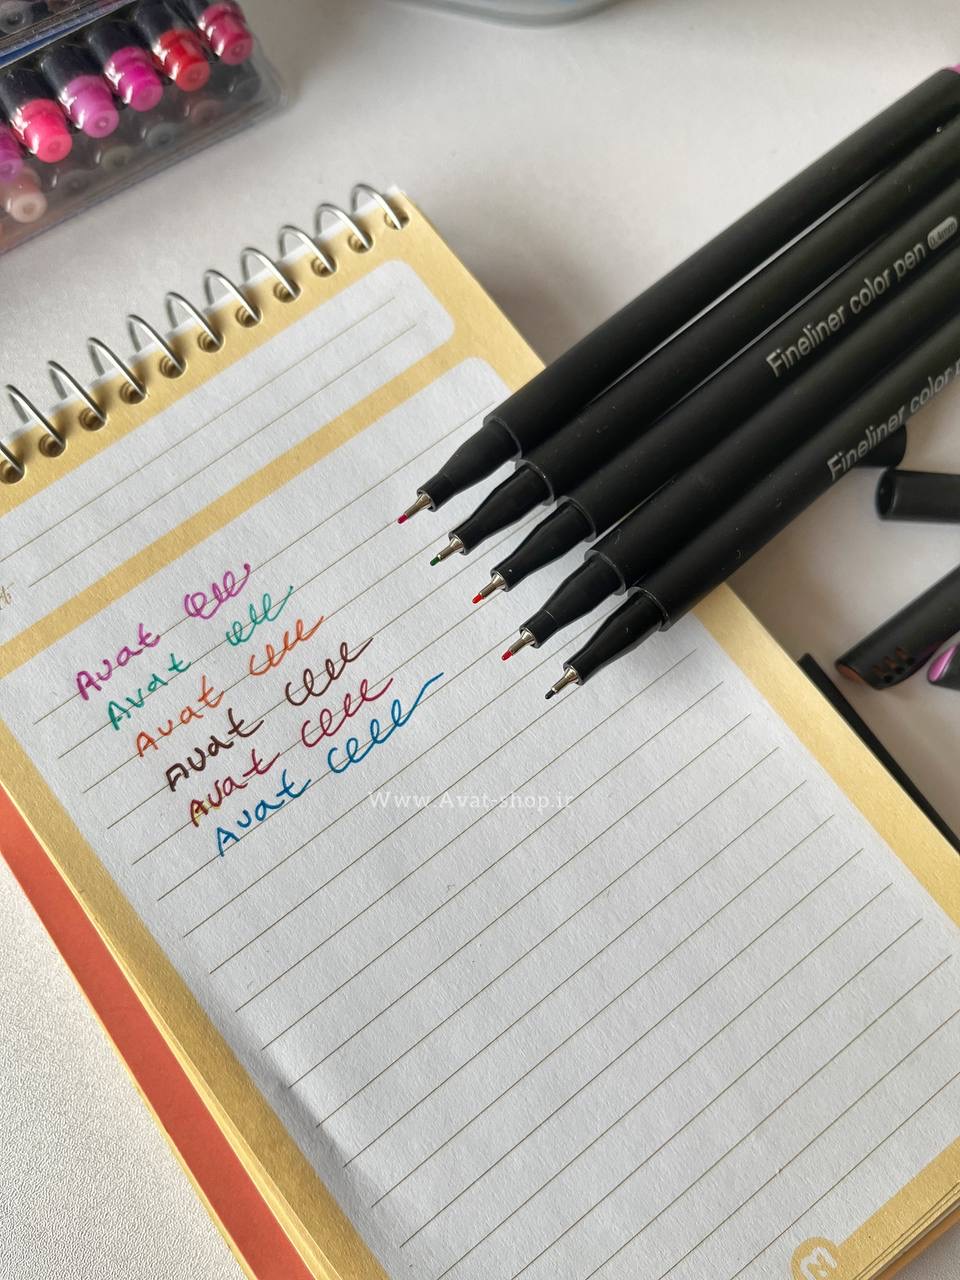 Fineliner color pen 0.4mm
Fineliner color
Avat
Avat
Avat
Avat
Avat
Avat
Www.Avat-shop.ir
M